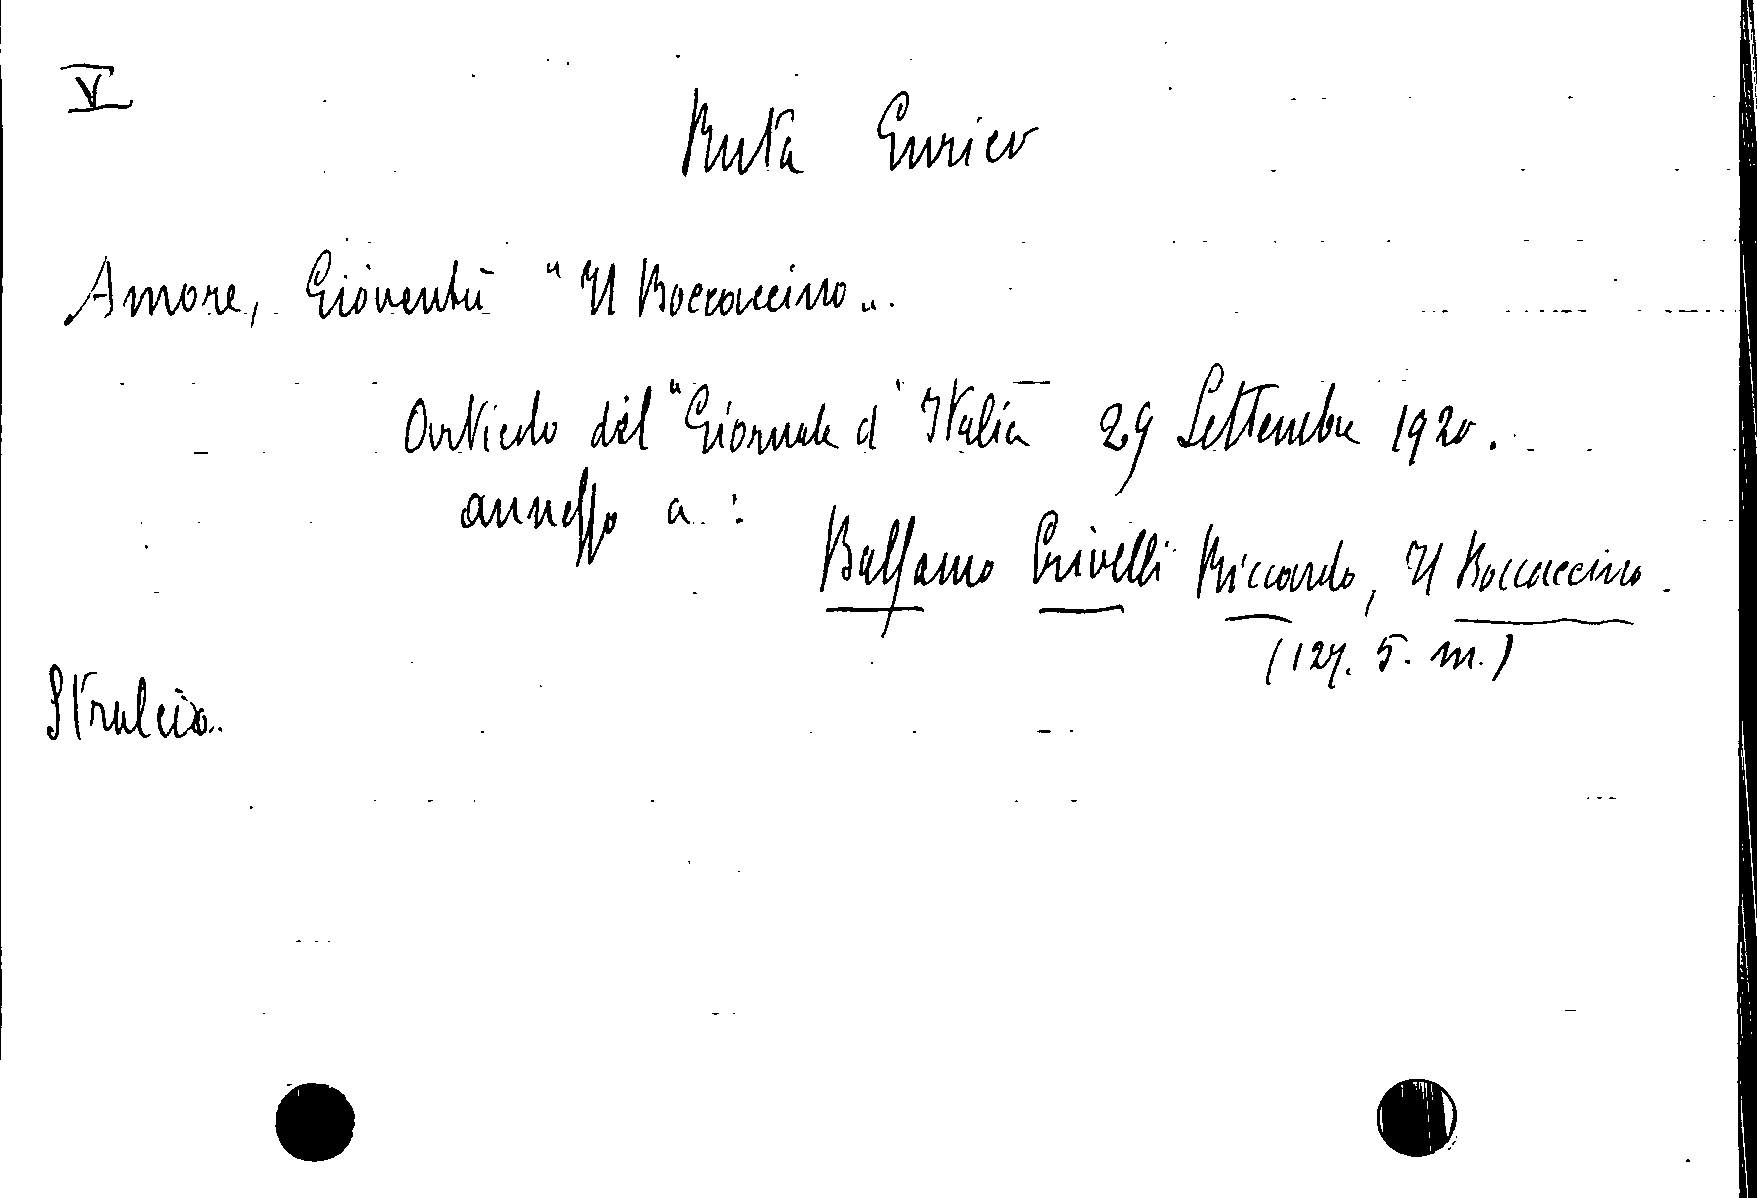 V
Ruta Enrico
Amore, Gioventù "Il Boccaccino".
Articolo del "Giornale d'Italia 29 Settembre 1920.
annesso a:
Balsamo Crivelli Riccardo, Il Boccaccino.
(127. 5. m.)
Stralcio.